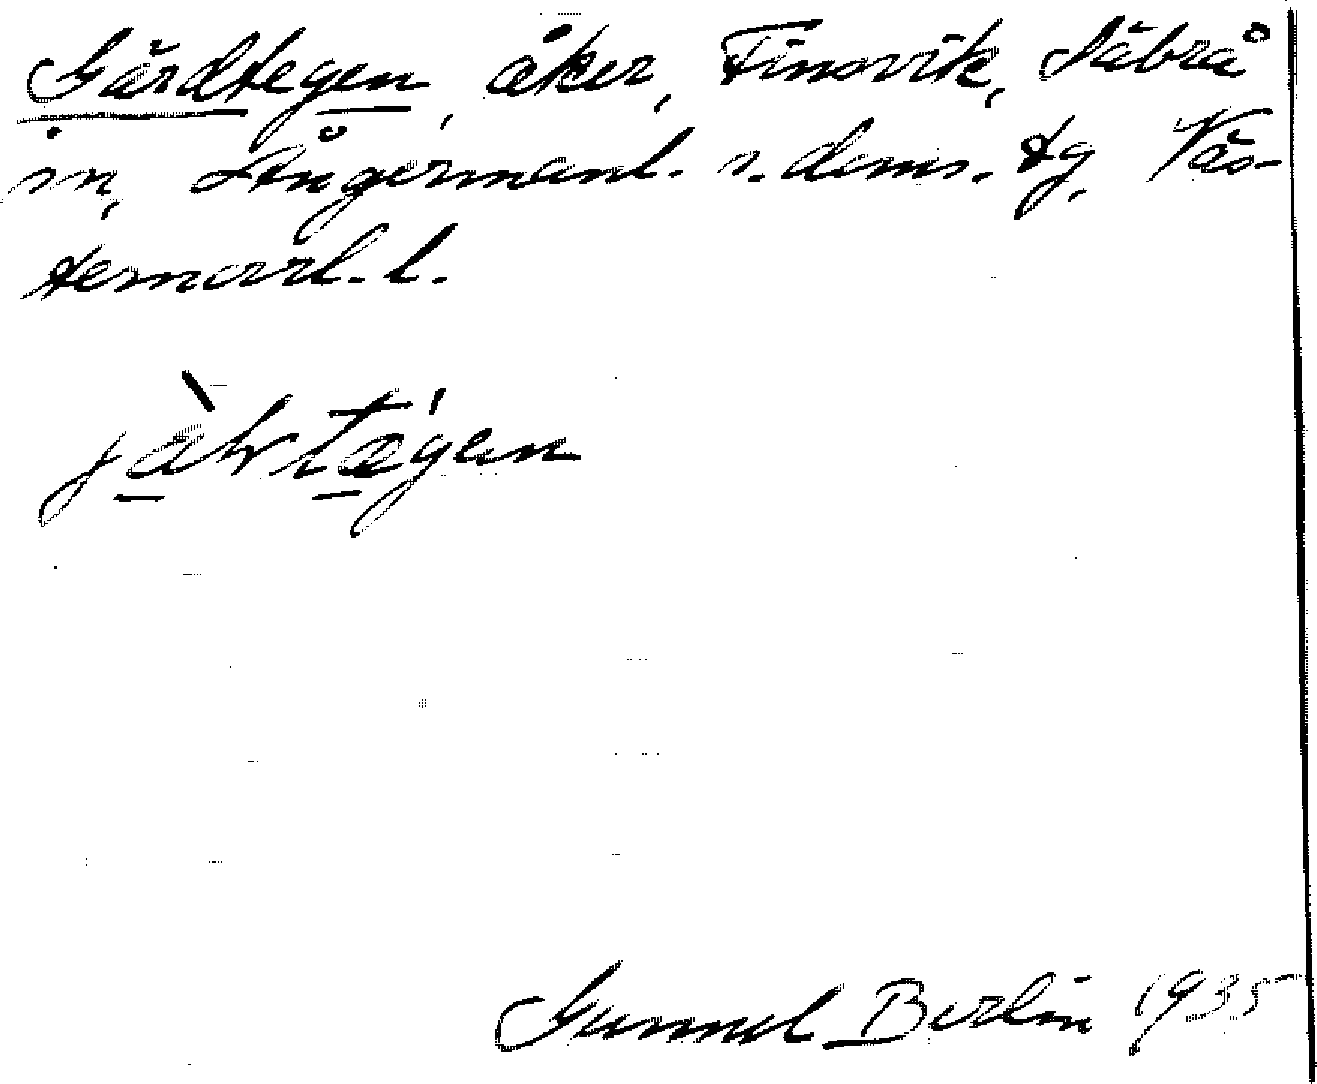 Gärdtegen, åker, Finsvik, Säbrå
sn, Ångermanl. s. doms. tg, Väs-
ternorrl. l.
Gunnel Berlin 1935